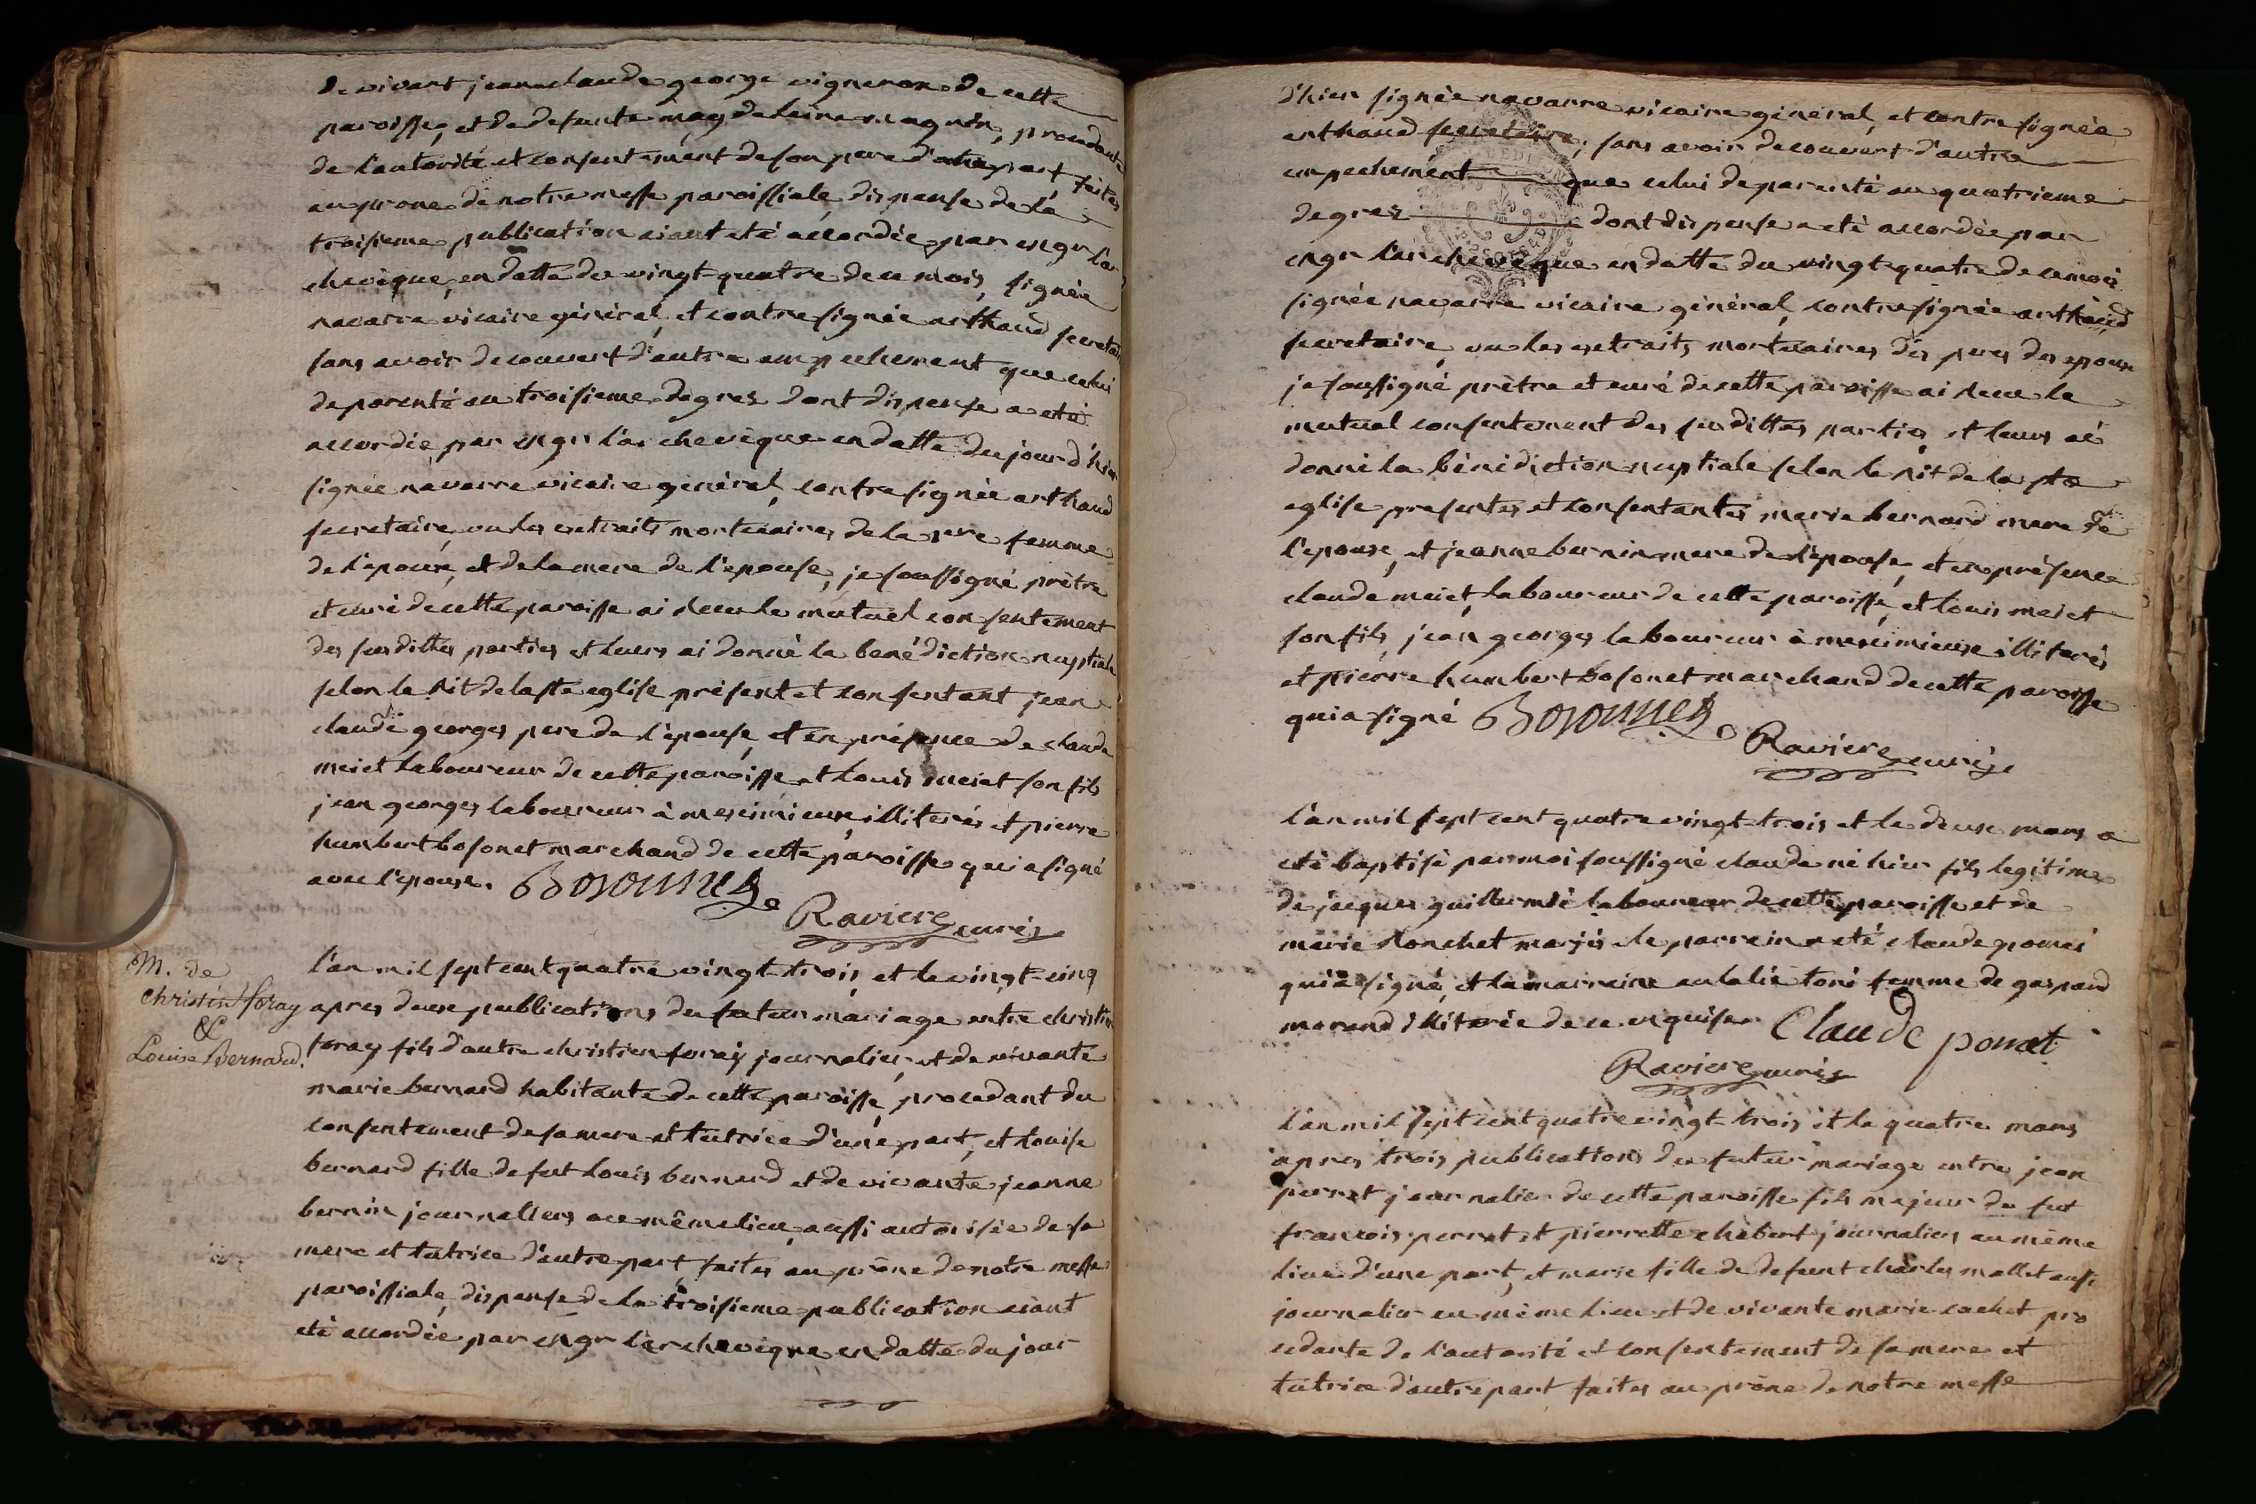 de vivant jean claude george vigneron de cette
paroisse, et de defunte magdeleine magnin, procedante
de l'autorité et consentement de son pere d'autre part faites
au prone de notre messe paroissiale, dispense de la
troisieme publication aiant eté accordée par mgr l'ar
chevêque, en datte du vingt quatre de ce mois, signée
navarre vicaire général, et contresignée arthaud secretaire
sans avoir decouvert d'autre empechement que celui
de parenté au troisieme degrez dont dispense a eté
accordée par mgr l'archevêque en datte du jour d'hier
signée navarre vicaire général, contresignée arthaud
secretaire, vu les extraits mortuaires de la 1ere femme
de l'epoux, et de la mere de l'epouse, je soussigné prêtre
et curé de cette paroisse ai recu le mutuel consentement
des susdittes parties et leurs ai donné la benédiction nuptiale
selon le rit de la ste eglise présent et consentant jean
claude georges pere de l'epouse, et en présence de claude
meiet laboureur de cette paroisse et louis meiet son fils
jean georges laboureur à meximieux illiterés et pierre
humbert bosonet marchand de cette paroisse qui a signé
avec l'epoux. Bosonnet
Raviere curé
M. de
christin foray
&
Louise Bernard.
l'an mil sept cent quatre vingt trois, et le vingt cinq
apres deux publications du futur mariage entre christin
foray fils d'autre christin foray journalier, et de vivante
marie bernard habitante de cette paroisse, procedant du
consentement de sa mere et tutrice d'une part, et louise
bernard fille de fut louis bernard et de vivante jeanne
bernin journaliers au même lieu, aussi autorisée de sa
mere et tutrice d'autre part, faites au prône de notre messe
paroissiale, dispense de la troisieme publication aiant
eté accordée par mgr l'archevêque en datte du jour
d'hier signée navarre vicaire général, et contresignée
arthaud secretaire, sans avoir decouvert d'autre
empechement que celui de parenté au quatrieme
degrez dont dispense a eté accordée par
mgr l'archevêque en datte du vingt quatre de ce mois
signée navarre vicaire général, contresignée arthaud
secretaire, vu les extraits mortuaires des peres des epoux
je soussigné prêtre et curé de cette paroisse ai recu le
mutuel consentement des susdittes parties, et leurs ai
donné la bénédiction nuptiale selon le rit de la ste
eglise presentes et consentantes marie bernard mere de
l'epoux, et jeanne bernin mere de l'epouse, et en présence
claude meiet, laboureur de cette paroisse, et louis meiet
son fils, jean georges laboureur à meximieux illiterés
et pierre humbert bosonet marchand de cette paroisse
qui a signé Bosonnet
Raviere curé
l'an mil sept cent quatre vingt trois et le deux mars a
eté baptisé par moi soussigné claude né hier fils legitime
de jacques guillermié laboureur de cette paroisse et de
marie donchet mariés le parrein a eté claude pomei
qui a signé, et la marreine eulalie toni femme de gaspard
morand illiterée de ce enquise. Claude ponat
Raviere curé
l'an mil sept cent quatre vingt trois et le quatre mars
apres trois publications du futur mariage entre jean
perret journalier de cette paroisse fils majeur de fut
francois perret et pierrette chabert journaliers au même
lieu d'une part, et marie fille de defunt charles mallet aussi
journalier au même lieu et de vivante marie cachet pro
cedante de l'autorité et consentement de sa mere et
tutrice d'autre part faites au prône de notre messe